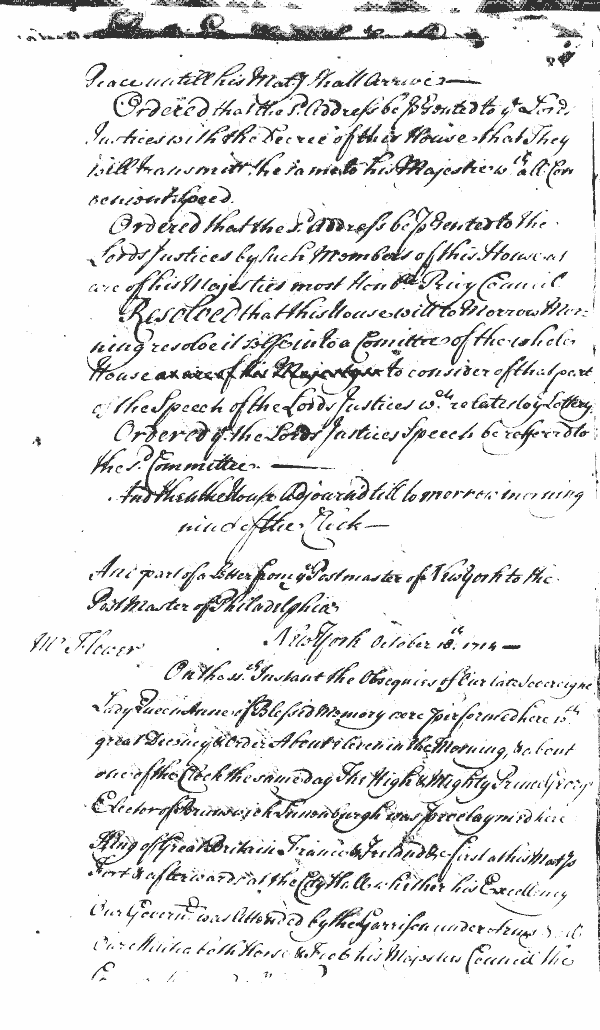 Peace untill his Maty shall arrive—
Ordered that the sd Address be prsented to ye Lords
Justices with the Decree of this House that They
will transmitt the same to his Majestie wth all Con
venient speed.
Ordered that the sd Address be prsented to the
Lords Justices by such Members of this House as
are of his Majesties most Honble Privy Councill
Resolved that this House will to Morrow Mor=
ning resolve it self into a Comittee of the whole
House to consider of that part
of the Speech of the Lords Justices wch relates to ye Lottery
Ordered yt the Lords Justices Speech be reffered to
the sd Committee —
And then the House Adjournd till to morrow morning
nine of the Clock —
And part of a Letter from ye Postmaster of New York to the
Post Master of Philadelphia
New York October 18th 1714 —
Mr Flower
On the 11th Instant the Obsequies of Our late Sovereigne
Lady Queen Anne of Blessed Memory were performed here wth
great Decency & Order About eleven in the Morning, & about
one of the Clock the same day The High & Mighty Prince George
Elector of Brunswick Lunenburgh was Proclaymed here
King of Great Britain France & Ireland &c first at his Matys
Fort & afterwards at the City Hall whither his Excellency
Our Governr was Attended by the Garrison under Arms
Our Militia both Horse & Foot his Majesties Councill the